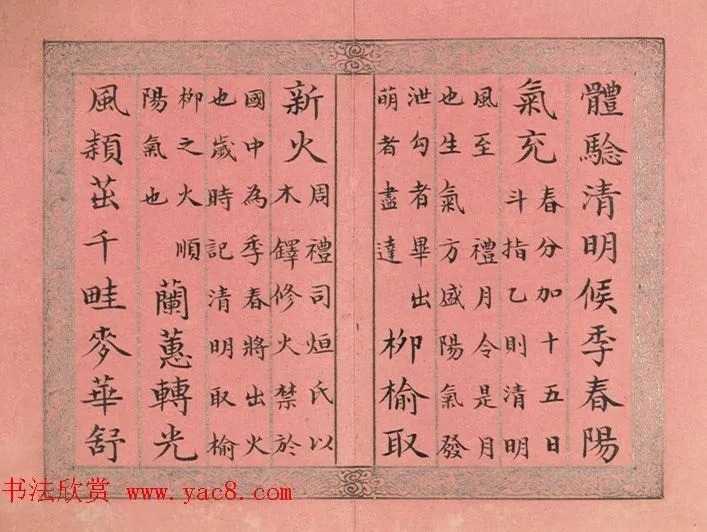 體騐清明候季春陽
氣充
春分加十五日
斗指乙則清明
風至 禮月令是月
也生氣方盛陽氣發
泄勾者畢出
萌者盡達
柳榆取
新火
周禮司烜氏以
木鐸修火禁於
國中為季春將出火
也歲時記清明取榆
柳之火順
陽氣也
蘭蕙轉光
風穎茁千畦麥華舒
书法欣赏 www.yac8.com